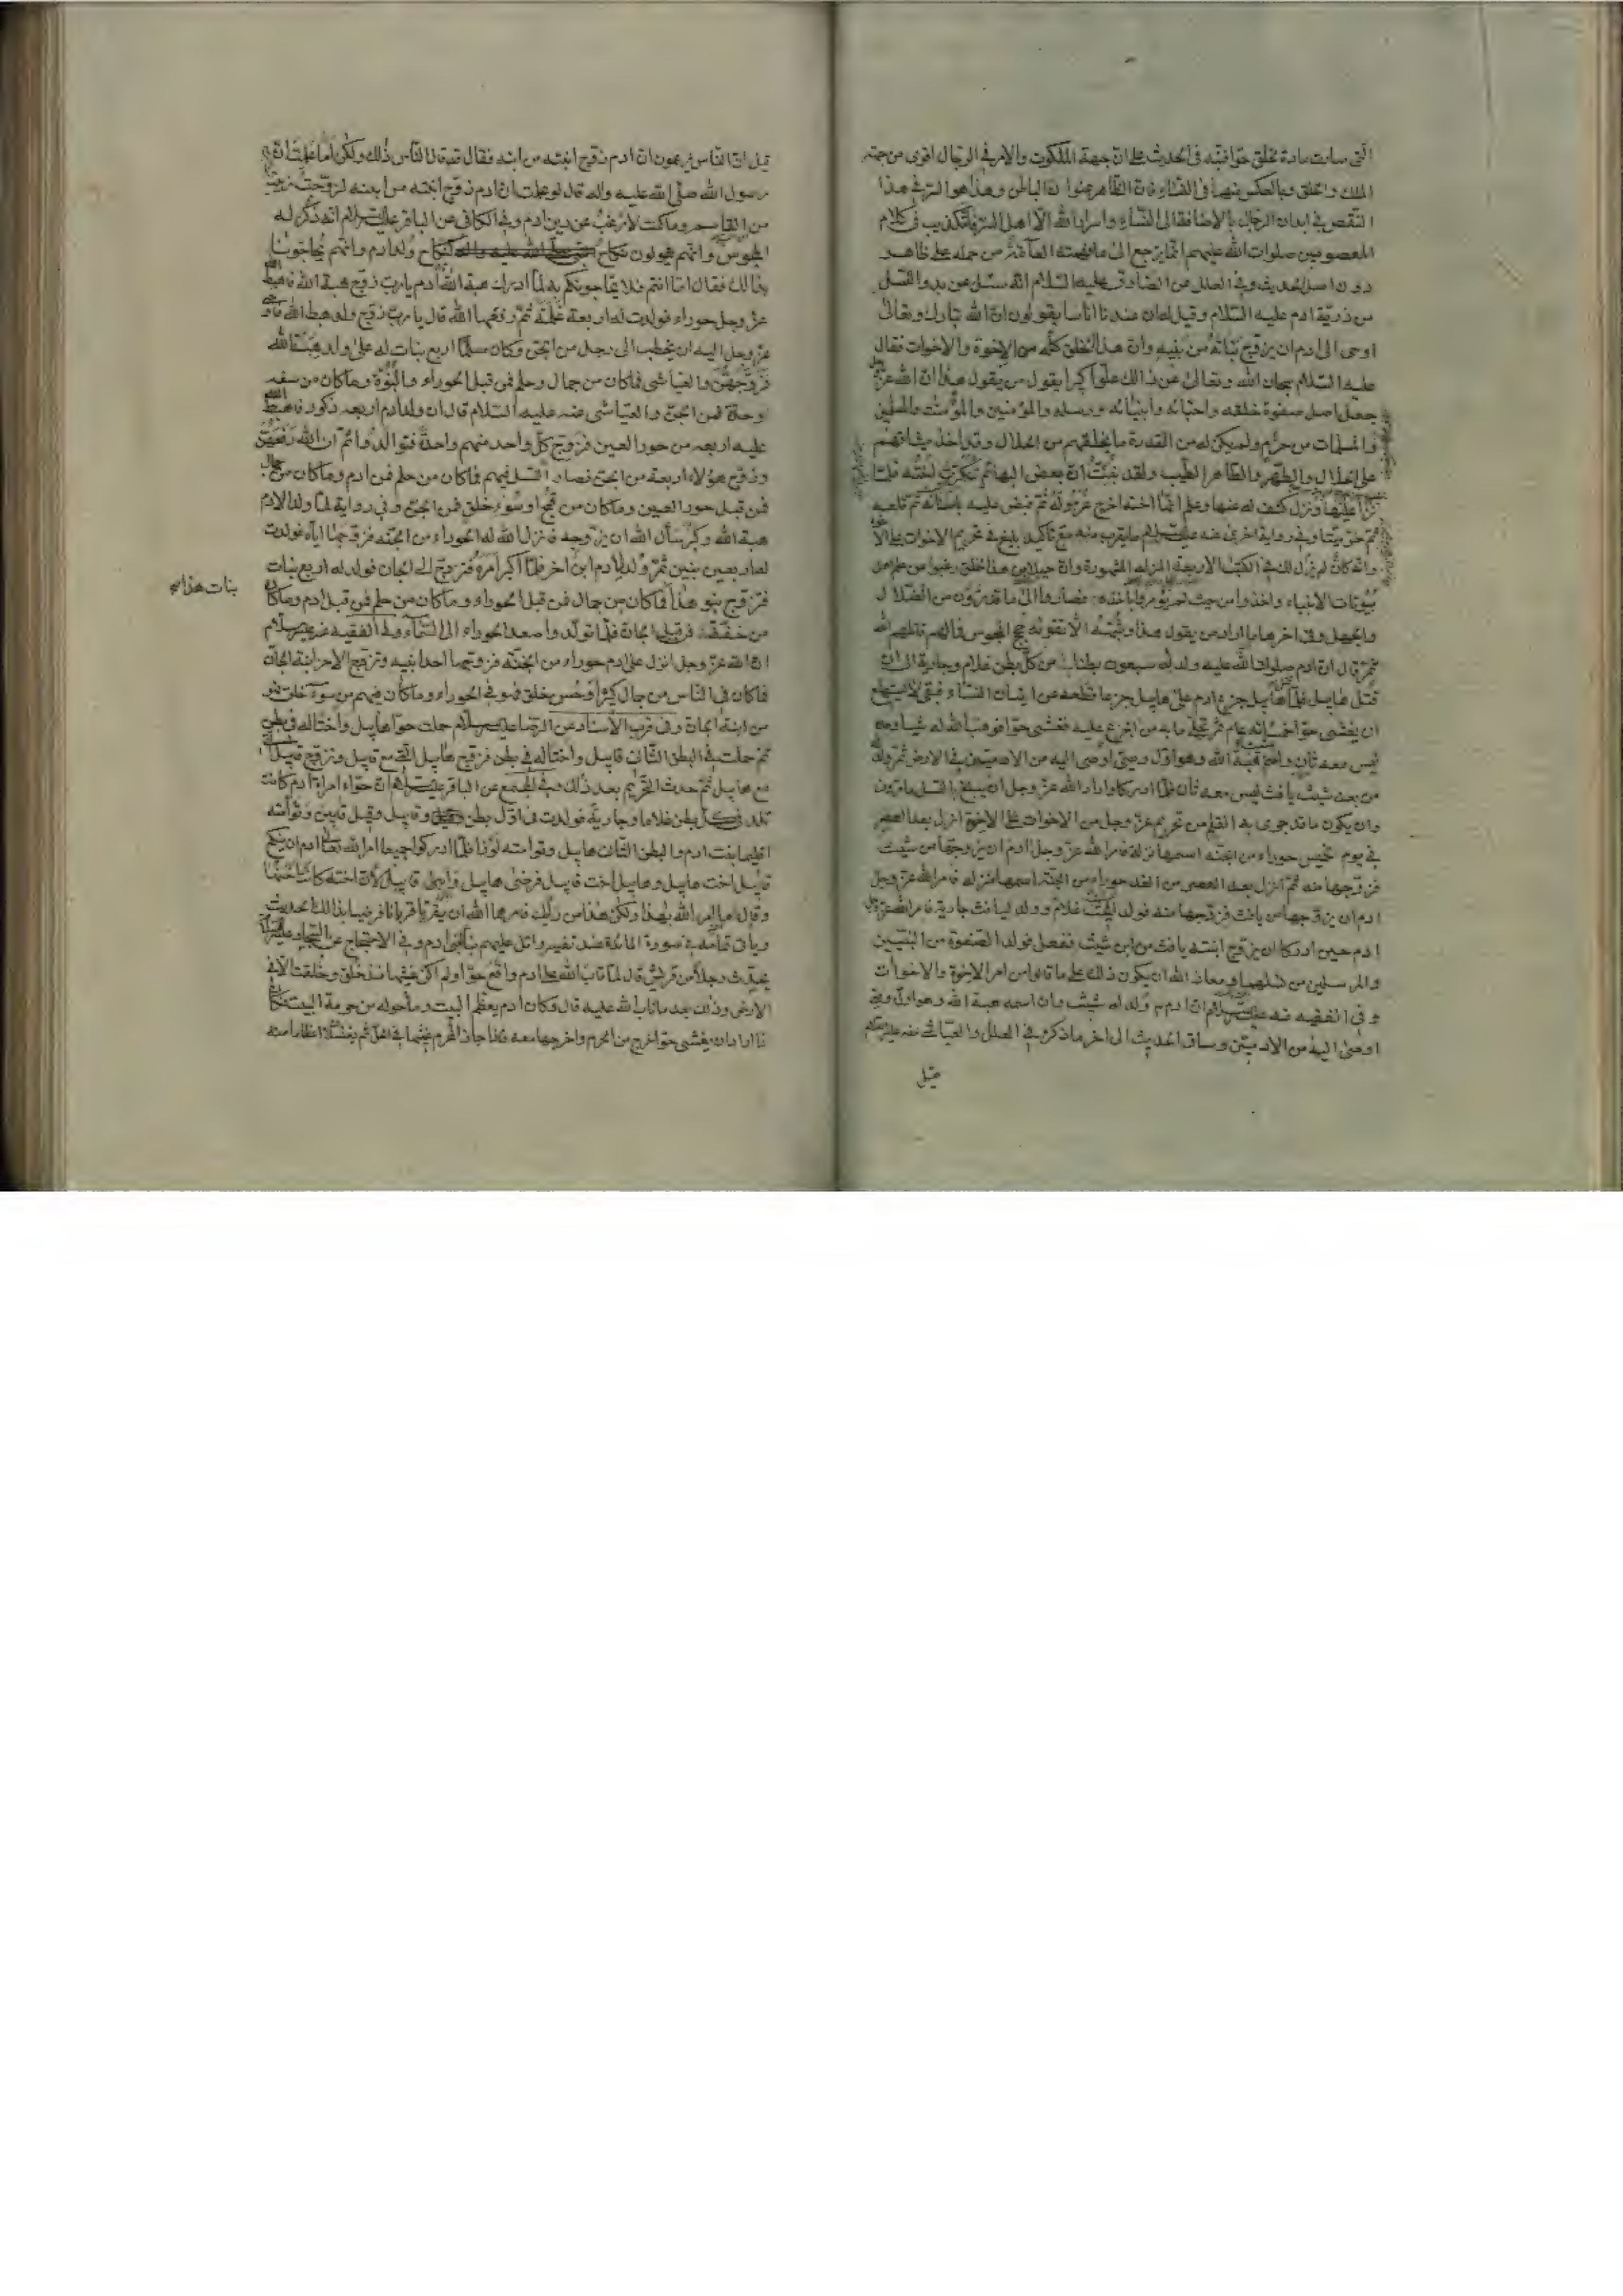 الّتي صارت مادة لخلق حوّا فنبّه في الحديث على انّ جهة الملكوت والامر في الرجال اقوى من جهة
الملك والخلق وبالعكس منهما في النّساء فانّ الظّاهر عنوان الباطن وهذا هو السّر في هذا
النّقص في ابدان الرجال بالاضافة الى النّساء واسرار الله لا الّا اهل السّر فالتكذيب في كلام
المعصومين صلوات الله عليهم انّما يرجع الى ما فهمته العامّة من حمله على ظاهره
دون اصل الحديث وفي العلل عن الصّادق عليه السّلام انّه سئل عن بدو النّسل
من ذريّة ادم عليه السّلام وقيل له ان عندنا اناسا يقولون انّ الله تبارك وتعالى
اوحى الى ادم ان يزوّج بناته من بنيه وانّ هذا الخلق كلّه من الاخوة والاخوات فقال
عليه السّلام سبحان الله وتعالى عن ذالك علوّا كبيرا يقول من يقول هذا انّ الله عزّ وجل
جعل اصل صفوة خلقه واحبّائه وانبيائه ورسله والمؤمنين والمؤمنات والمسلمين
والمسلمات من حرام ولم يكن له من القدرة ما يخلقهم من الحلال وقد اخذ ميثاقهم
على الحلال والطّهر والطّاهر الطّيب ولقد نبّئت انّ بعض البهائم تنكّرت له اخته فلمّا
نزا عليها ونزل كشف له عنها وعلم انّها اخته اخرج غرموله ثمّ قبض عليه باسنانه ثم قلعه
ثمّ خرّ ميّتا وفي رواية اخرى عنه عليه السلام ما يقرب منه مع تأكيد بليغ في تحريم الاخوات على الاخوة
وانّه كان لم يزل كذلك في الكتب الاربعة المنزلة المشهورة وانّ جيلا من هذا الخلق رغبوا عن علم اهل
بيوتات الانبياء واخذوا من حيث لم يؤمروا باخذه فصاروا الى ما قد ترون من الضّلال
والجهل وفي اخرها ما اراد من يقول هذا وشبهه الّا تقوية حجج المجوس فما لهم قاتلهم الله
ثمّ قال انّ ادم صلوات الله عليه ولد له سبعون بطنا في كلّ بطن غلام وجارية الى ان
قتل هابيل فلمّا قتل هابيل جزع ادم على هابيل جزعا قطعه عن اتيان النّساء فبقي لا يستطيع
ان يغشى حوّا خمسمائة عام ثم تجلّى ما به من الجزع عليه فغشى حوّا فوهب الله له شيثا وحده
ليس معه ثان واسم شيث هبة الله وهو اوّل وصيّ اوصي اليه من الادميّين في الارض ثمّ ولد له
من بعد شيث يافث ليس معه ثان فلمّا ادركا واراد الله عزّ وجل ان يبلغ بالنّسل ما ترون
وان يكون ما قد جرى به القلم من تحريم عزّ وجل من الاخوات على الاخوة انزل بعد العصر
في يوم خميس حوراء من الجنّة اسمها نزلة فامر الله عزّ وجل ادم ان يزوجها من شيث
فزوّجها منه ثمّ انزل بعد العصر من الغد حوراء من الجنّة اسمها منزلة فامر الله عزّ وجل
ادم ان يزوجها من يافث فزوّجها منه فولد لشيث غلام وولد ليافث جارية فامر الله عزّ وجل
ادم حين ادركا ان يزوّج ابنة يافث من ابن شيث ففعل فولد الصّفوة من النّبيّين
والمرسلين من نسلهما ومعاذ الله ان يكون ذلك على ما قالوا من امر الاخوة والاخوات
وفي الفقيه عنه عليه السلام انّ ادم ولد له شيث وانّ اسمه هبة الله وهو اوّل وصيّ
اوصى اليه من الادميّين وساق الحديث الى اخر ما ذكره في العلل والعيّاشي عنه عليه السلام
قيل
قيل له انّ النّاس يزعمون انّ ادم زوّج ابنته من ابنه فقال قد قال النّاس ذلك ولكن اما علمت انّ
رسول الله صلّى الله عليه واله قال لو علمت انّ ادم زوّج ابنته من ابنه لزوّجت زينب
من القاسم وما كنت لارغب عن دين ادم وفي الكافي عن الباقر عليه السلام انه ذكر له
المجوس وانّهم يقولون نكاح كنكاح ولد ادم وانّهم يحاجّوننا
بذالك فقال امّا انتم فلا يحاجّونكم به لمّا ادرك هبة الله قال ادم يا ربّ زوّج هبة الله فاهبط الله
عزّ وجل حوراء فولدت له اربعة غلمة ثمّ رفعها الله قال يا ربّ زوّج ولد هبة الله فاوحى
عزّ وجل اليه ان يخطب الى رجل من الجنّ وكان مسلما اربع بنات له على ولد هبة الله
فزوّجهنّ والعيّاشي فما كان من جمال وحلم فمن قبل الحوراء والنّبوّة وما كان من سفه
او حدّة فمن الجنّ والعيّاشي عنه عليه السّلام قال انّ ولد ادم اربعة ذكور فاهبط الله
عليه اربعة من حور العين فزوّج كلّ واحد منهم واحدة فتوالدوا ثمّ ان الله رفعهنّ
وزوّج هؤلاء اربعة من الجنّ فصار النّسل فيهم فما كان من حلم فمن ادم وما كان من جمال
فمن قبل حور العين وما كان من قبح او سوء خلق فمن الجنّ وفي رواية لمّا ولد لادم
هبة الله وكبر سأل الله ان يزوّجه فانزل الله له حوراء من الجنّة فزوّجها ايّاه فولدت
له اربعة بنين ثمّ ولد لادم ابن اخر فلمّا كبر امره فتزوّج الى الجان فولد له اربع بنات
فتزوّج بنو هذا فما كان من جمال فمن قبل الحوراء وما كان من حلم فمن قبل ادم وما كان
بنات هذا صح
من خفّة فمن قبل الجان فلمّا توالدوا صعد الحوراء الى السّماء وفي الفقيه عنه عليه السلام
انّ الله عزّ وجل انزل على ادم حوراء من الجنّة فزوّجها احد ابنيه وتزوّج الاخر ابنة الجان
فما كان في النّاس من جمال كثير او حسن خلق فهو في الحوراء وما كان فيهم من سوء خلق فهو
من ابنة الجان وفي قرب الاسناد عن الرّضا عليه السلام حملت حوّا هابيل واختا له في بطن
ثم حملت في البطن الثّاني قابيل واختا له في بطن فزوّج هابيل الّتي مع قابيل وتزوّج قابيل الّتي
مع هابيل ثمّ حدث التّحريم بعد ذلك وفي المجمع عن الباقر عليه السلام انّ حوّاء امراة ادم كانت
تلد في كلّ بطن غلاما وجارية فولدت في اوّل بطن وقابيل وقيل قابين وتوأمته
اقليما بنت ادم والبطن الثّاني هابيل وتوامته لوزا فلمّا ادركوا جميعا امر الله تعالى ادم ان ينكح
قابيل اخت هابيل وهابيل اخت قابيل فرضى هابيل وابى قابيل لانّ اخته كانت احسنهما
وقال ما امر الله بهذا ولكن هذا من رأيك فامرهما الله ان يقرّبا قربانا فرضيا بذالك الحديث
وياتي تمامه في سورة المائدة عند تفسير واتل عليهم نبأ ابني ادم وفي الاحتجاج عن السّجاد عليه السلام
يحدّث رجلا من قريش قال لمّا تاب الله على ادم واقع حوّا ولم يكن غشيها منذ خلق وخلقت الّا في
الارض وذلك بعد ما تاب الله عليه قال وكان ادم يعظّم البيت وما حوله من حرمة البيت فكان
اذا اراد ان يغشى حوّا خرج من الحرم واخرجها معه فاذا جاز الحرم غشيها في الحلّ ثم يغتسلان اعظاما منه